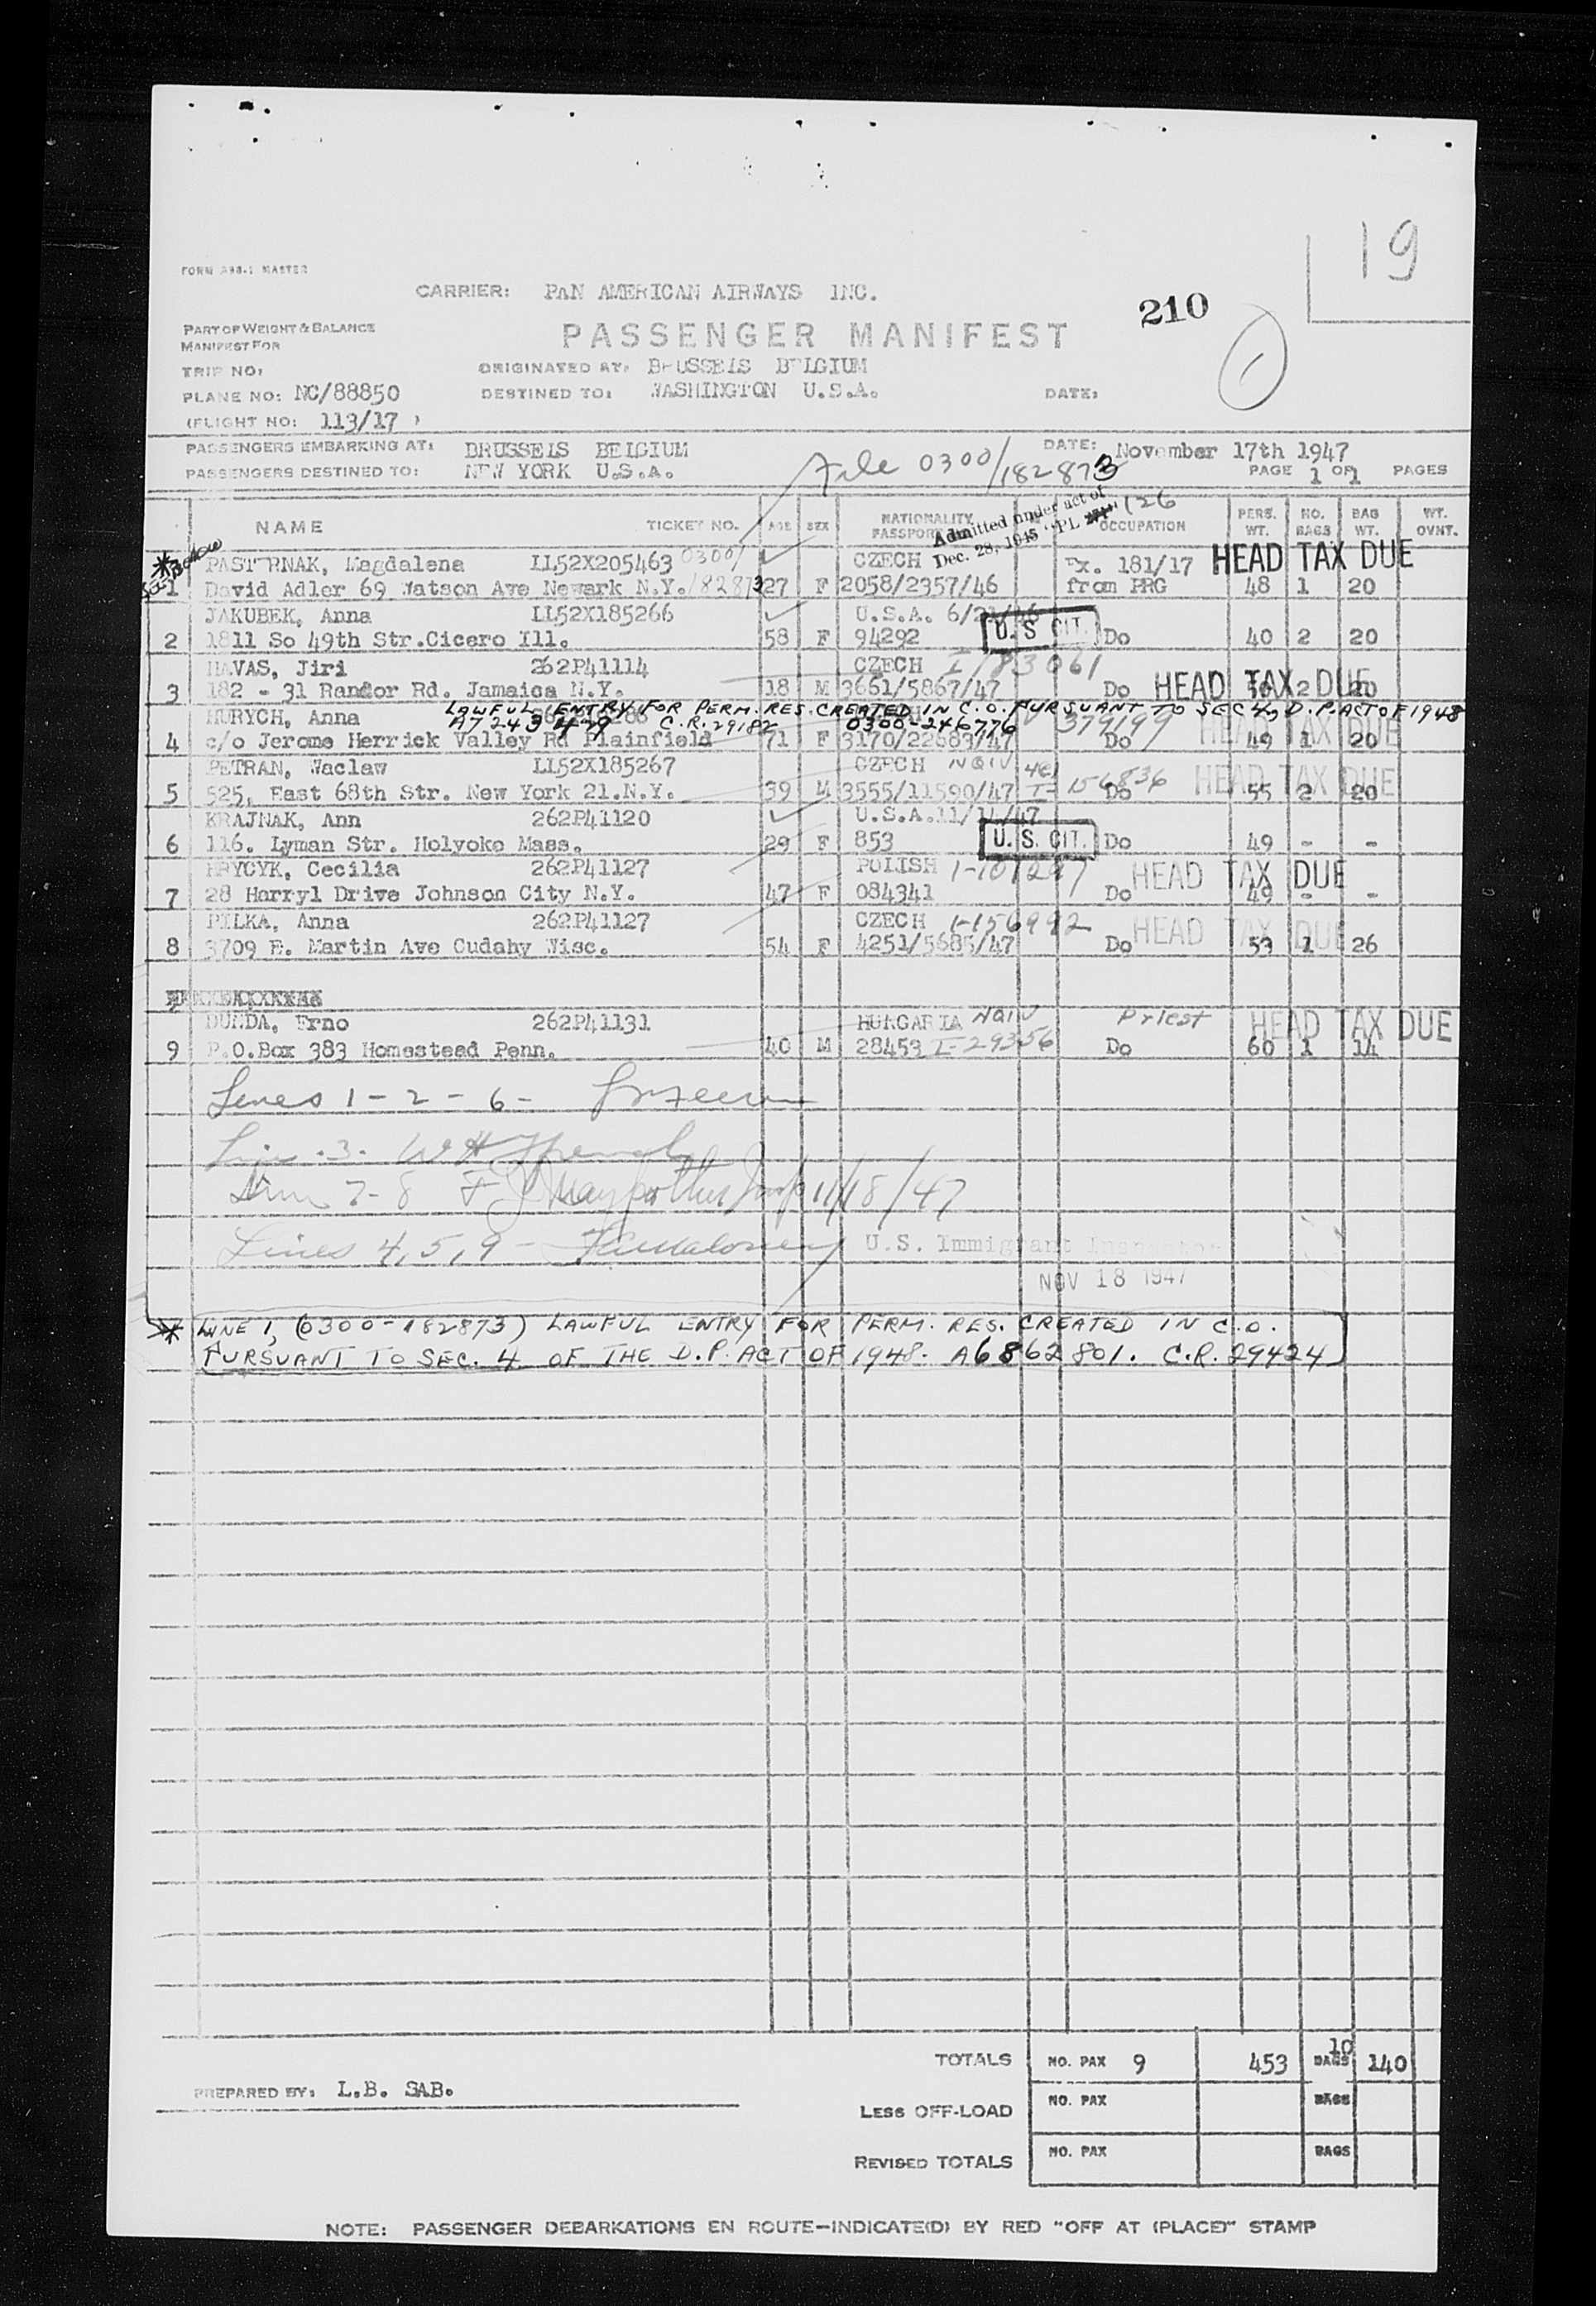 19
FORM 298-1 MASTER
CARRIER: PAN AMERICAN AIRWAYS INC.
210
PART OF WEIGHT & BALANCE
MANIFEST FOR
PASSENGER MANIFEST
1
TRIP NO:
ORIGINATED AT: BRUSSELS BELGIUM
PLANE NO: NC/88850
DESTINED TO: WASHINGTON U.S.A.
DATE:
(FLIGHT NO: 113/17 )
PASSENGERS EMBARKING AT: BRUSSELS BELGIUM
DATE: November 17th 1947
PASSENGERS DESTINED TO: NEW YORK U.S.A.
File 0300/182873
PAGE 1 OF 1 PAGES
NAME TICKET NO. AGE SEX NATIONALITY PASSPORT OCCUPATION PERS. WT. NO. BAGS BAG WT. WT. OVNT.
Admitted under act of
Dec. 28, 1945 "PL 271"
126
* See Below
PASTERNAK, Magdalena LL52X205463 0300/ CZECH Tx. 181/17 HEAD TAX DUE
1 David Adler 69 Watson Ave Newark N.Y. 182873 27 F 2058/2357/46 from PRG 48 1 20
JAKUBEK, Anna LL52X185266 U.S.A. 6/21/46
2 1811 So 49th Str.Cicero Ill. 58 F 94292 U.S. CIT. Do 40 2 20
HAVAS, Jiri 262P41114 CZECH I 183061
3 182 - 31 Randor Rd. Jamaica N.Y. 18 M 3661/5867/47 Do HEAD TAX DUE 50 2 20
LAWFUL ENTRY FOR PERM. RES. CREATED IN C.O. PURSUANT TO SEC 4, D.P. ACT OF 1948
HURYCH, Anna A7243429 C.R. 29182 0300-246776 V 379199 HEAD TAX DUE
4 c/o Jerome Herrick Valley Rd Plainfield 71 F 3170/22683/47 Do 49 1 20
PETRAN, Waclaw LL52X185267 CZECH NQIV 4(c) I-156836 HEAD TAX DUE
5 525, East 68th Str. New York 21.N.Y. 39 M 3555/11590/47 Do 55 2 20
KRAJNAK, Ann 262P41120 U.S.A.11/11/47
6 116. Lyman Str. Holyoke Mass. 29 F 853 U.S. CIT. Do 49 - -
HRYCYK, Cecilia 262P41127 POLISH I-101297 HEAD TAX DUE
7 28 Harryl Drive Johnson City N.Y. 47 F 084341 Do 49 - -
PILKA, Anna 262P41127 CZECH I-156992 HEAD TAX DUE
8 3709 E. Martin Ave Cudahy Wisc. 54 F 4251/5685/47 Do 53 1 26
DUNDA, Erno 262P41131 HUNGARIA NQIV Priest HEAD TAX DUE
9 P.O.Box 383 Homestead Penn. 40 M 28453 I-29356 Do 60 1 14
Lines 1 - 2 - 6 -
Line 3. W H
Lines 7-8 11/18/47
Lines 4, 5, 9 - U.S. Immigrant Inspector
NOV 18 1947
* LINE 1, (0300-182873) LAWFUL ENTRY FOR PERM. RES. CREATED IN C.O.
PURSUANT TO SEC. 4 OF THE D.P. ACT OF 1948. A6862801. C.R. 29424
TOTALS NO. PAX 9 453 10 BAGS 140
PREPARED BY: L.B. SAB.
LESS OFF-LOAD NO. PAX BAGS
REVISED TOTALS NO. PAX BAGS
NOTE: PASSENGER DEBARKATIONS EN ROUTE—INDICATE(D) BY RED "OFF AT (PLACE)" STAMP